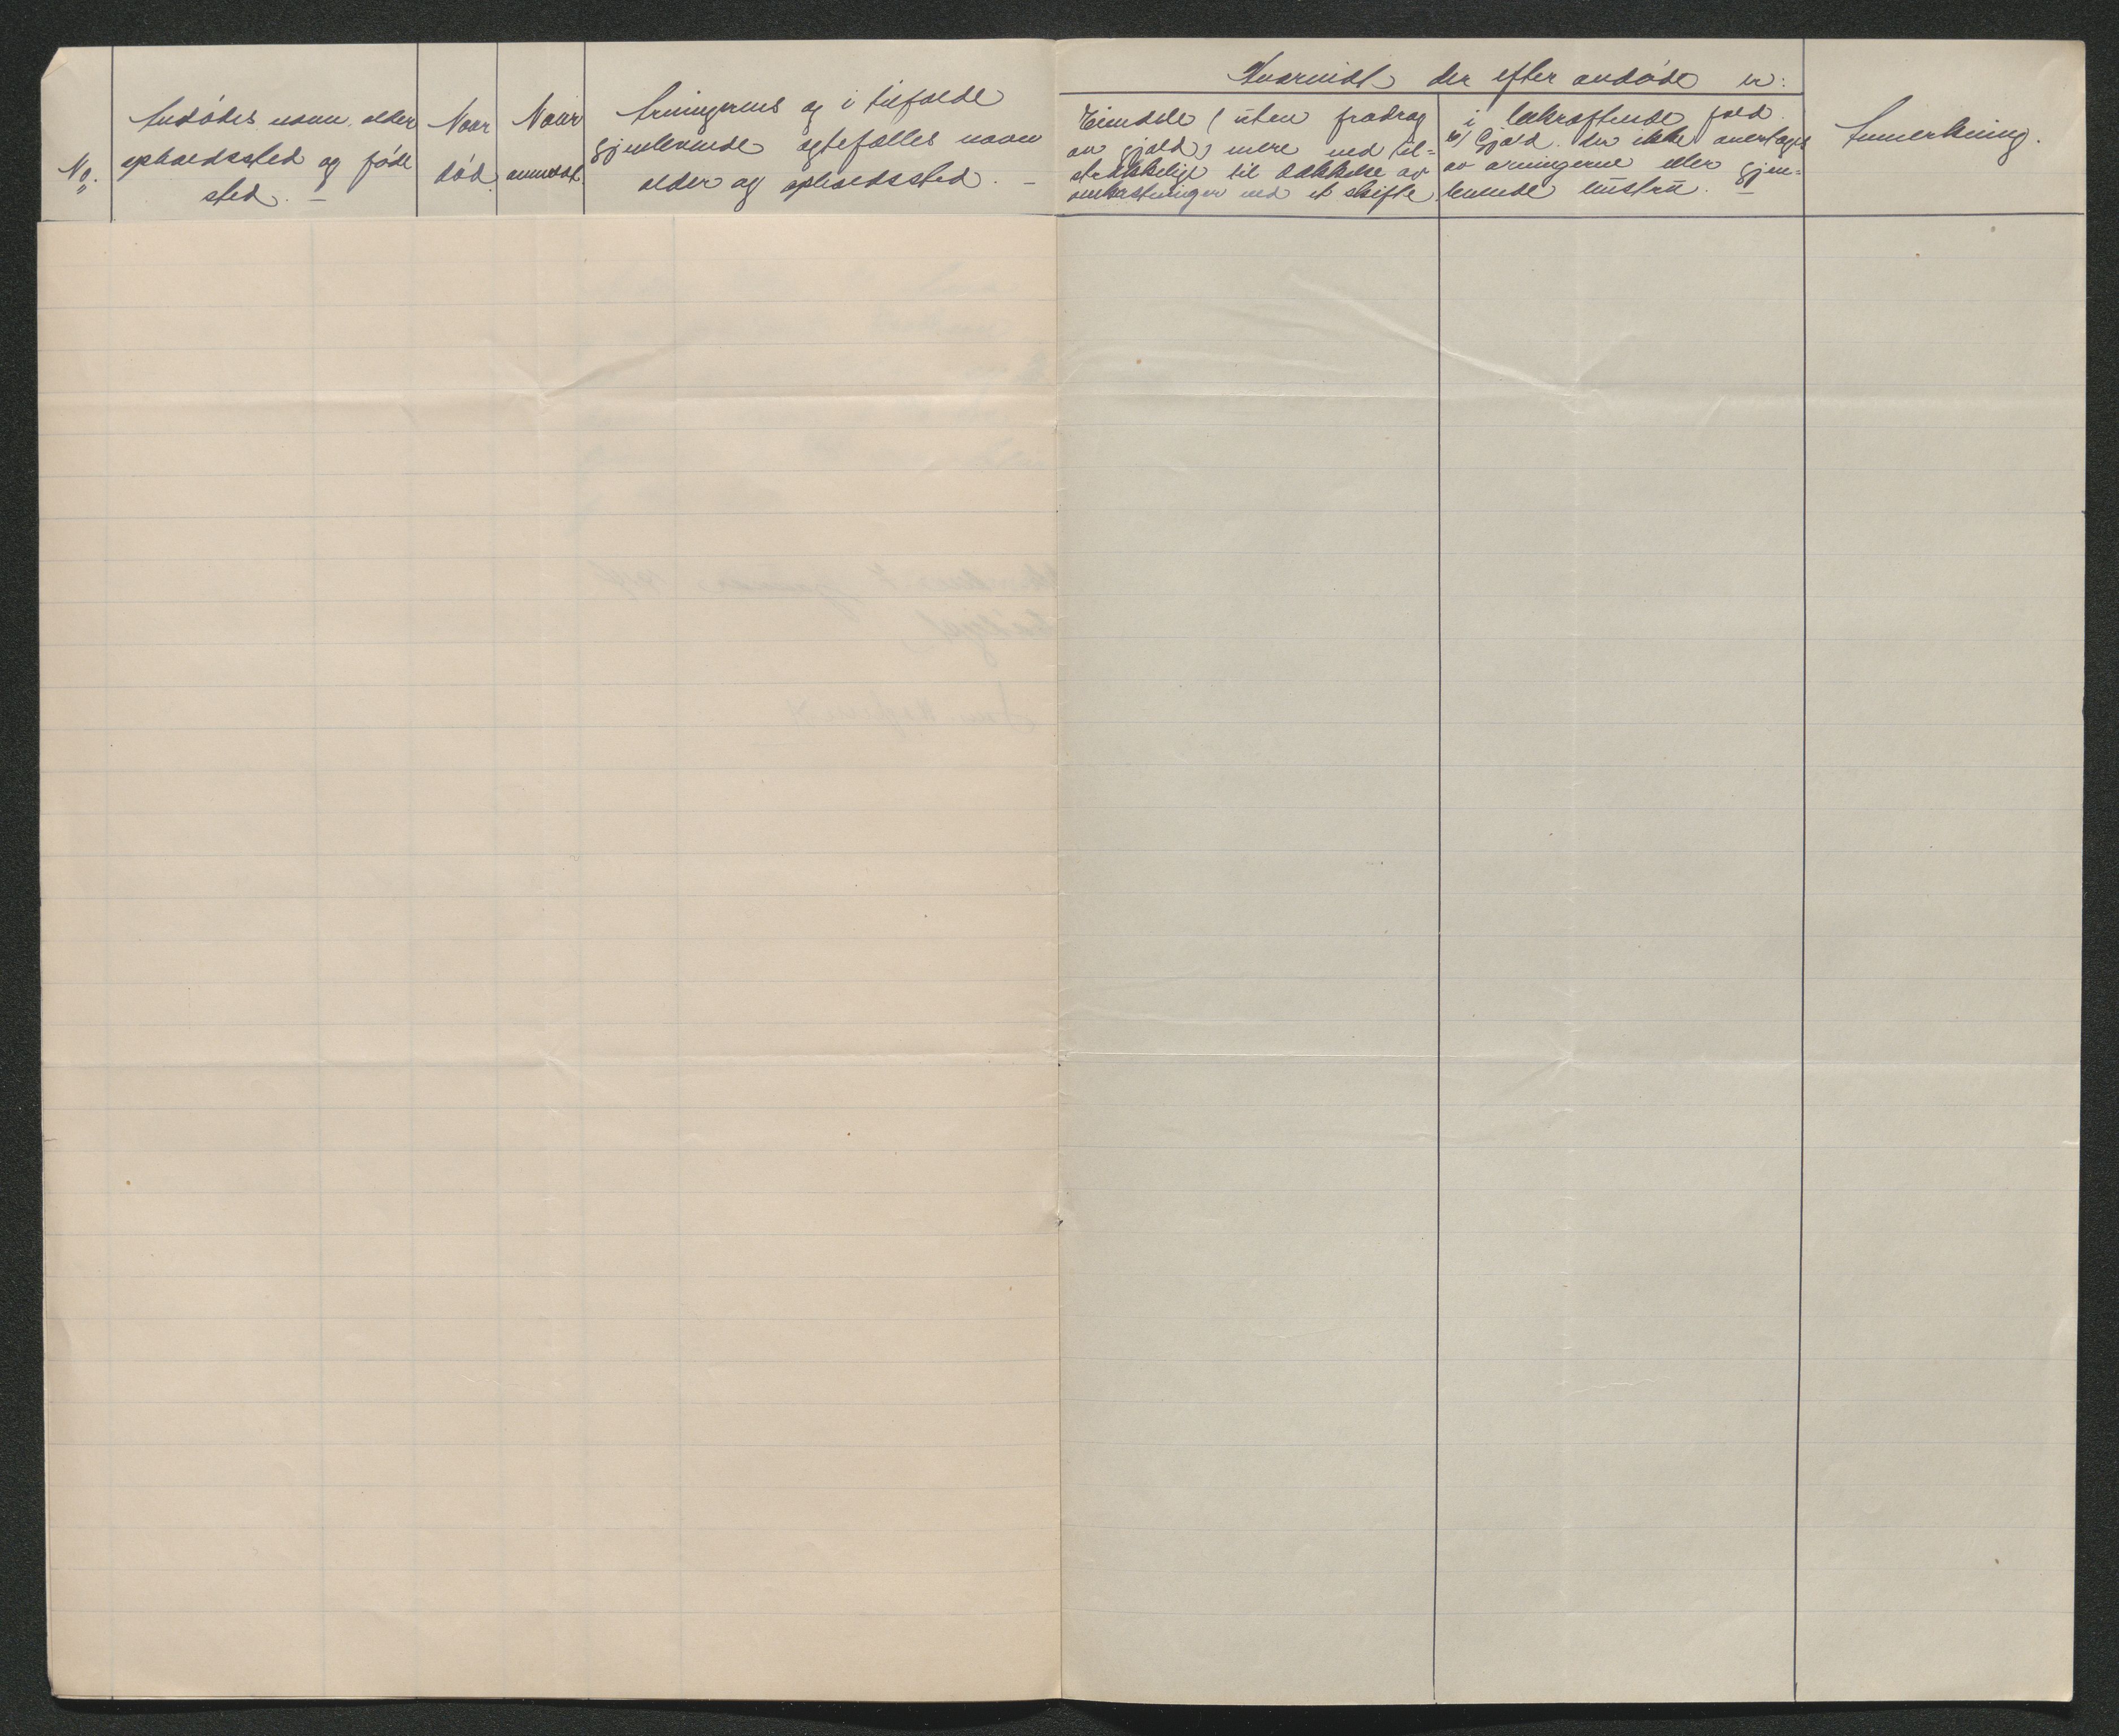 No.
Avdødes navn, alder
opholdssted og føde
sted. –
Naar
død.
Naar
anmeldt.
Arvingernes og i tilfælde
gjenlevende egtefælles navn
alder og opholdssted. –
Hvorvidt der efter avdøde er:
Eiendele (uten fradrag
av gjæld) mere end til-
strækkelige til dækkelse av
omkostninger ved et skifte
i bekræftende fald
b) Gjæld. der ikke overtages
av arvingerne eller gjen-
levende hustru. –
Anmerkning.